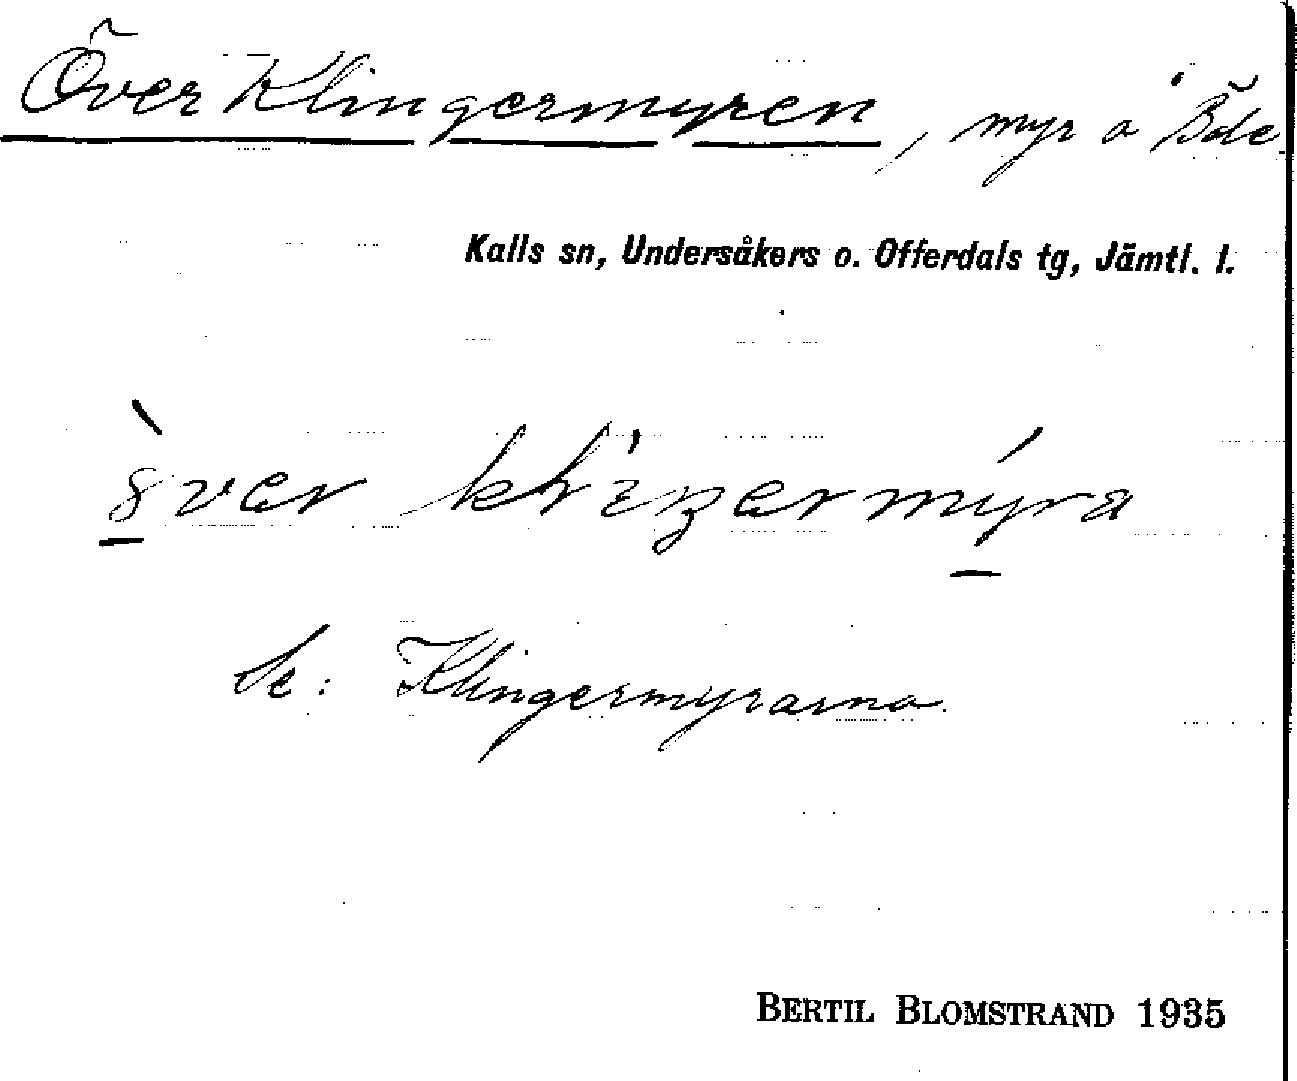 Över Klingermyren, myr å Böle.
Kalls sn, Undersåkers o. Offerdals tg, Jämtl. l.
Se: Klingermyrarna.
BERTIL BLOMSTRAND 1935